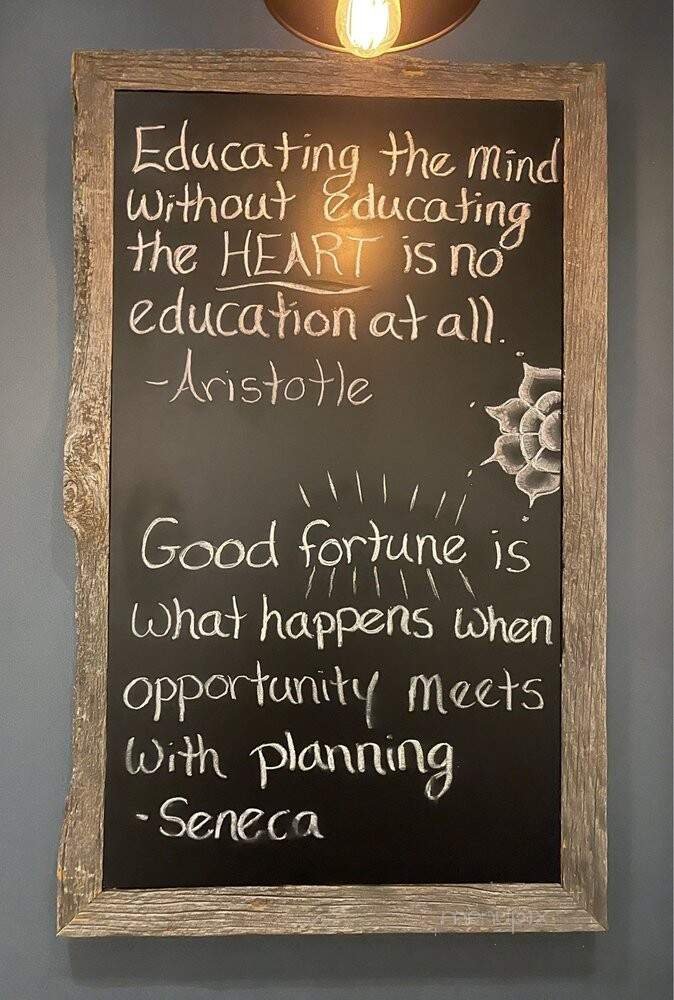 Educating the mind
without educating
the HEART is no
education at all.
-Aristotle
Good fortune is
what happens when
opportunity meets
with planning
-Seneca
menupix